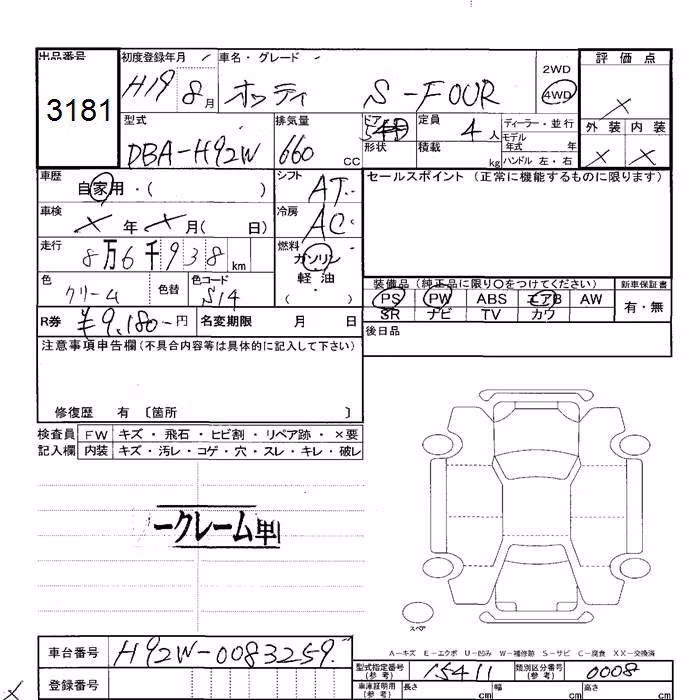 出品番号 初度登録年月 車名・グレード 2WD 評価点
3181 H19 8月 オッティ S-FOUR 4WD ×
型式 排気量 ドア 定員 4人 ディーラー・並行 外装 内装
DBA-H92W 660 cc 形状 積載 kg モデル年式 年 ハンドル 左・右 × ×
車歴 自家用・( ) シフト AT セールスポイント (正常に機能するものに限ります)
車検 × 年 × 月( 日) 冷房 AC
走行 8万6千938 km 燃料 ガソリン
軽油
色 クリーム 色替 色コード S14 ( ) 装備品 (純正品に限り○をつけてください) 新車保証書
PS PW ABS エアB AW 有・無
R券 ¥9,180-円 名変期限 月 日 SR ナビ TV カワ
後日品
注意事項申告欄(不具合内容等は具体的に記入して下さい)
修復歴 有 〔箇所 〕
検査員 FW キズ・飛石・ヒビ割・リペア跡・×要
記入欄 内装 キズ・汚レ・コゲ・穴・スレ・キレ・破レ
ークレーム
スペア
A-キズ E-エクボ U-凹み W-補修跡 S-サビ C-腐食 XX-交換済
車台番号 H92W-0083259 型式指定番号(参考) 15411 類別区分番号(参考) 0008
登録番号 車庫証明用(参考) 長さ cm 幅 cm 高さ cm
×